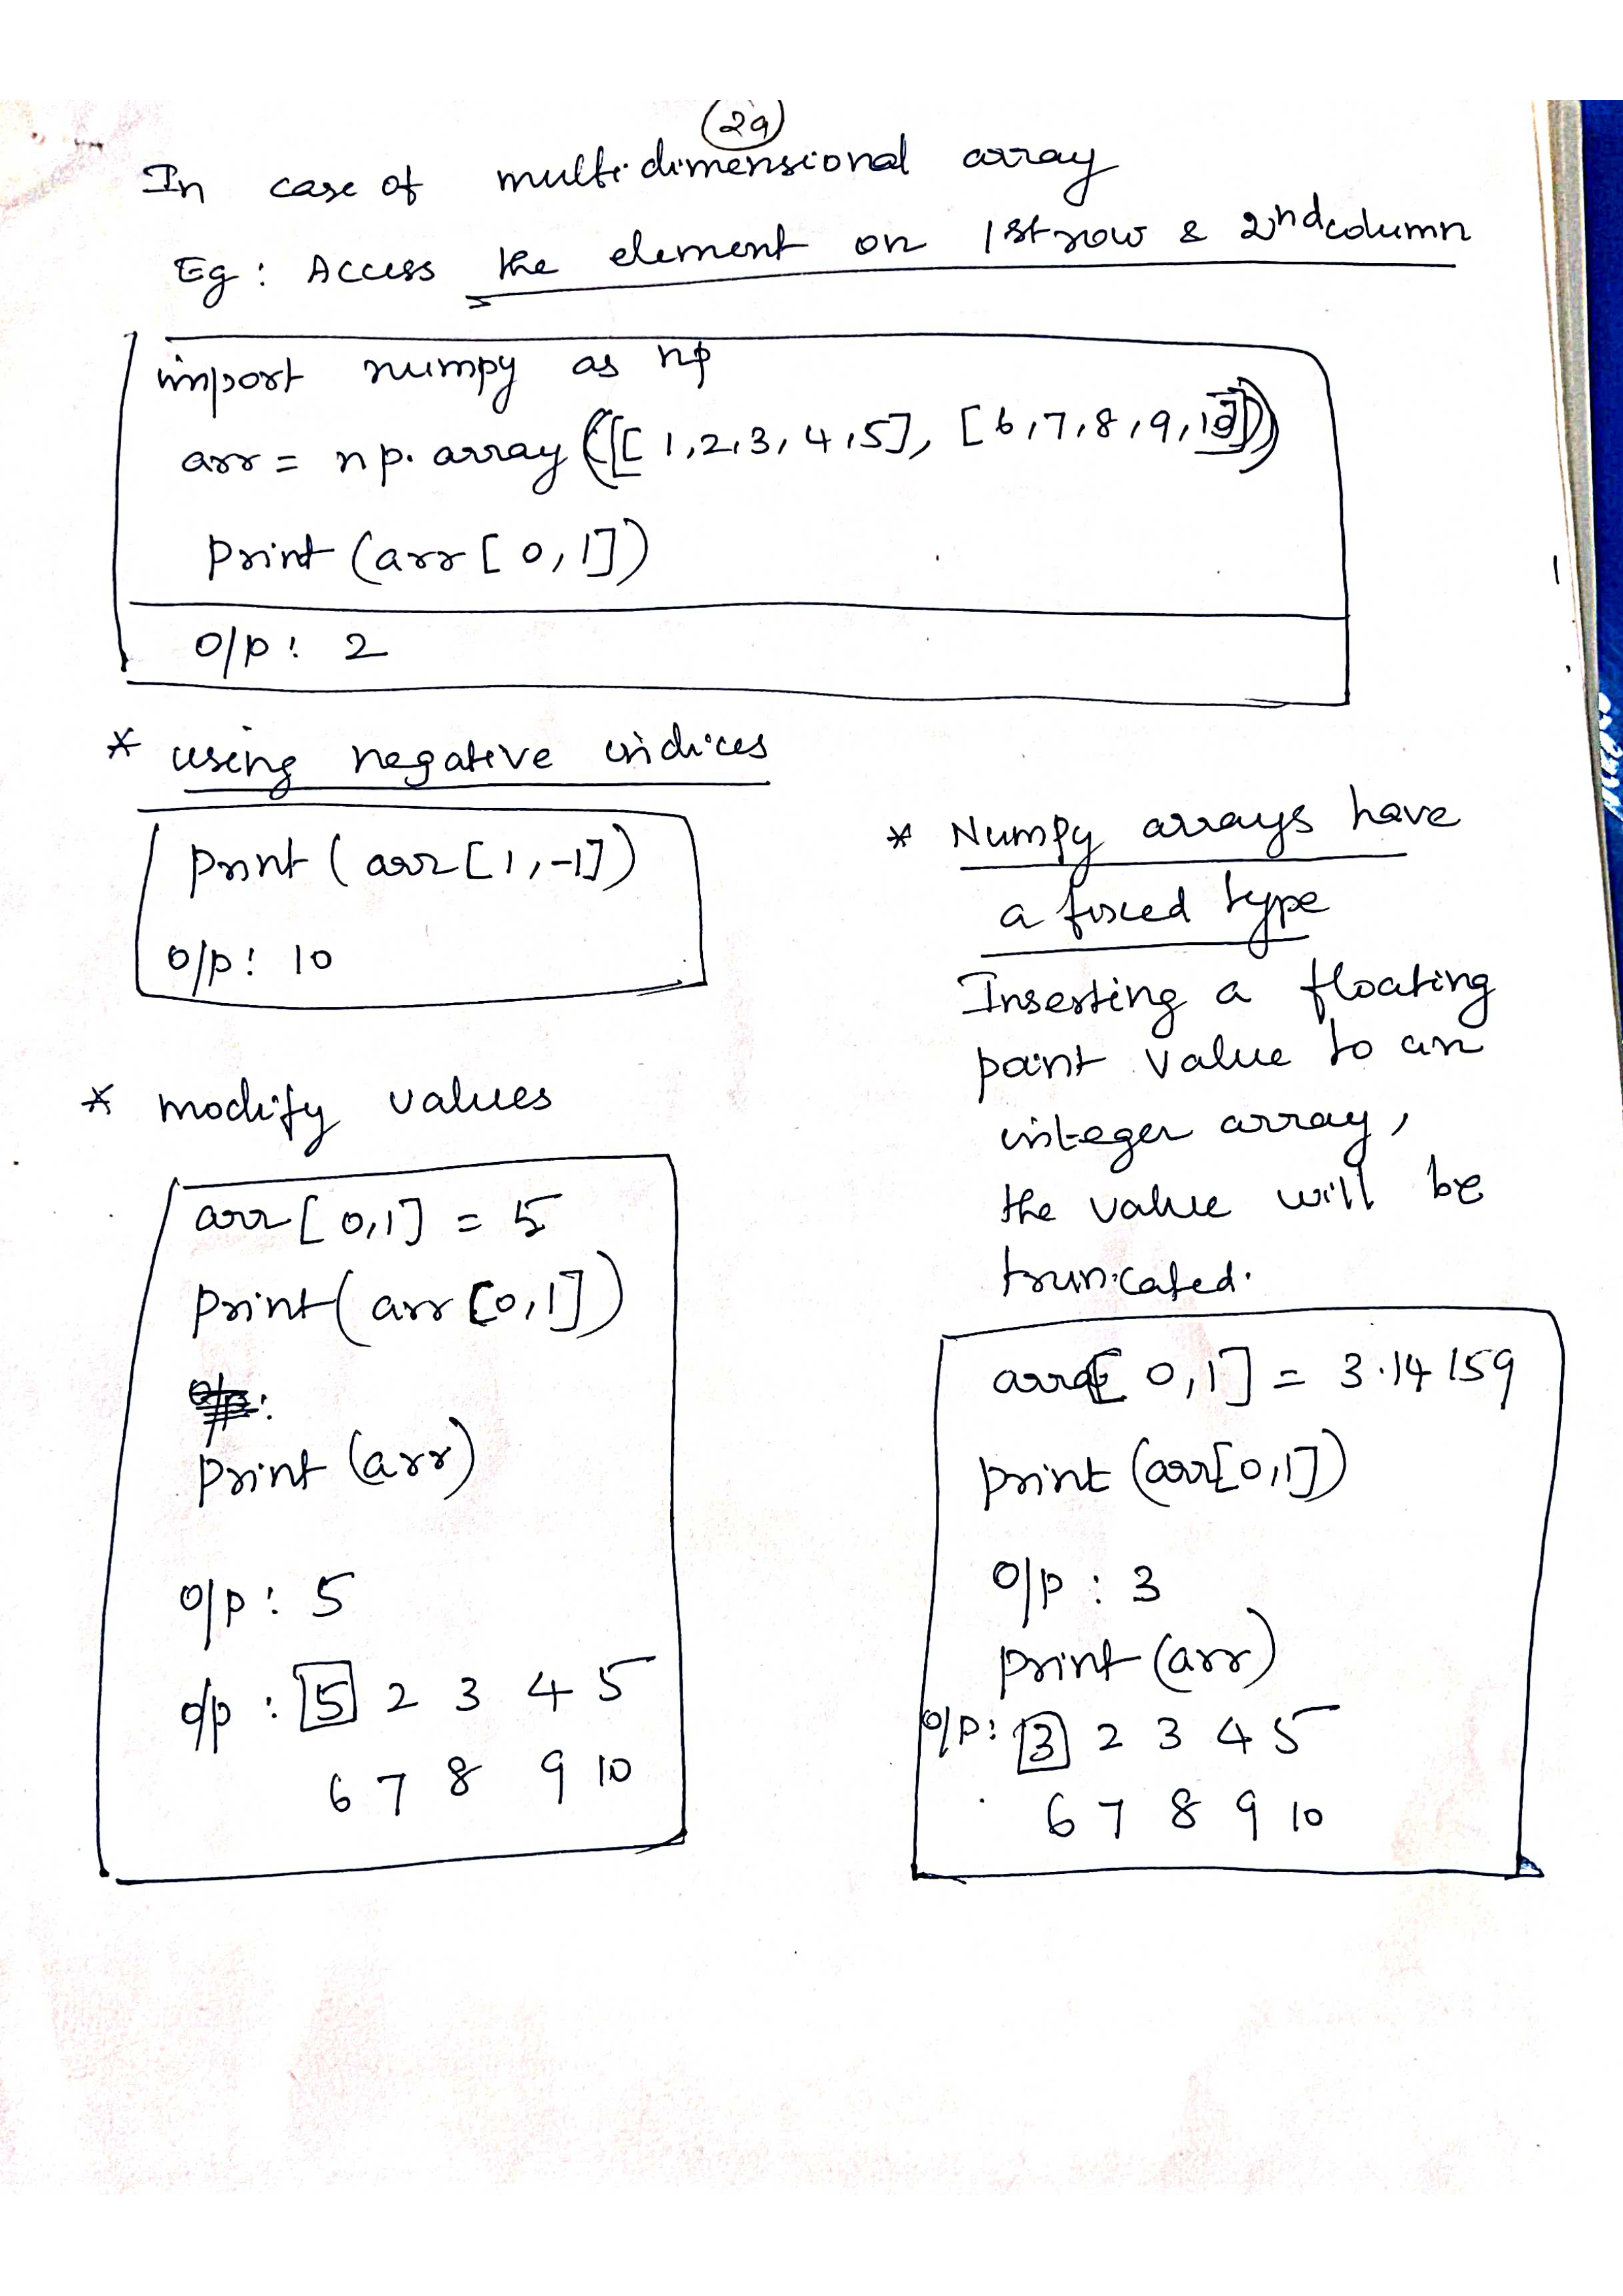 (29)
In case of multidimensional array
Eg : Access the element on 1st row & 2nd column
import numpy as np
arr = np.array([[1,2,3,4,5], [6,7,8,9,10]])
print(arr[0,1])
o/p: 2
* using negative indices
print(arr[1,-1])
o/p: 10
* modify values
arr[0,1] = 5
print(arr[0,1])
print(arr)
o/p: 5
o/p: 5 2 3 4 5
6 7 8 9 10
* Numpy arrays have
a fixed type
Inserting a floating
point value to an
integer array,
the value will be
truncated.
arr[0,1] = 3.14159
print(arr[0,1])
o/p : 3
print(arr)
o/p: 3 2 3 4 5
6 7 8 9 10